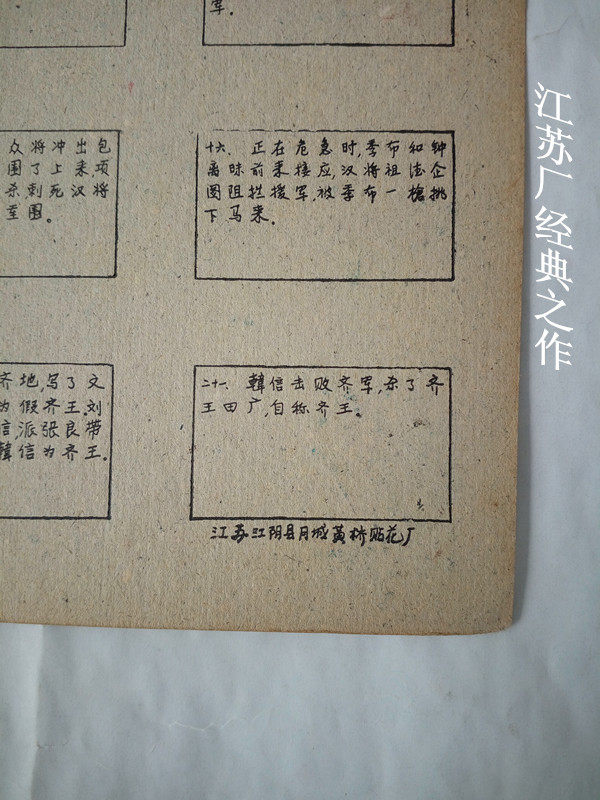 军。
众将冲出包
围了上来项
杀刺死汉将
至围。
十六、正在危急时,季布和钟
离昧前来接应,汉将祖德企
图阻拦援军,被季布一槍挑
下马来。
齐地,写了文
为假齐王.刘
信,派张良带
韓信为齐王。
二十一、韓信击败齐军,杀了齐
王田广,自称齐王。
江苏江阴县月城黃桥贴花厂
江苏厂经典之作